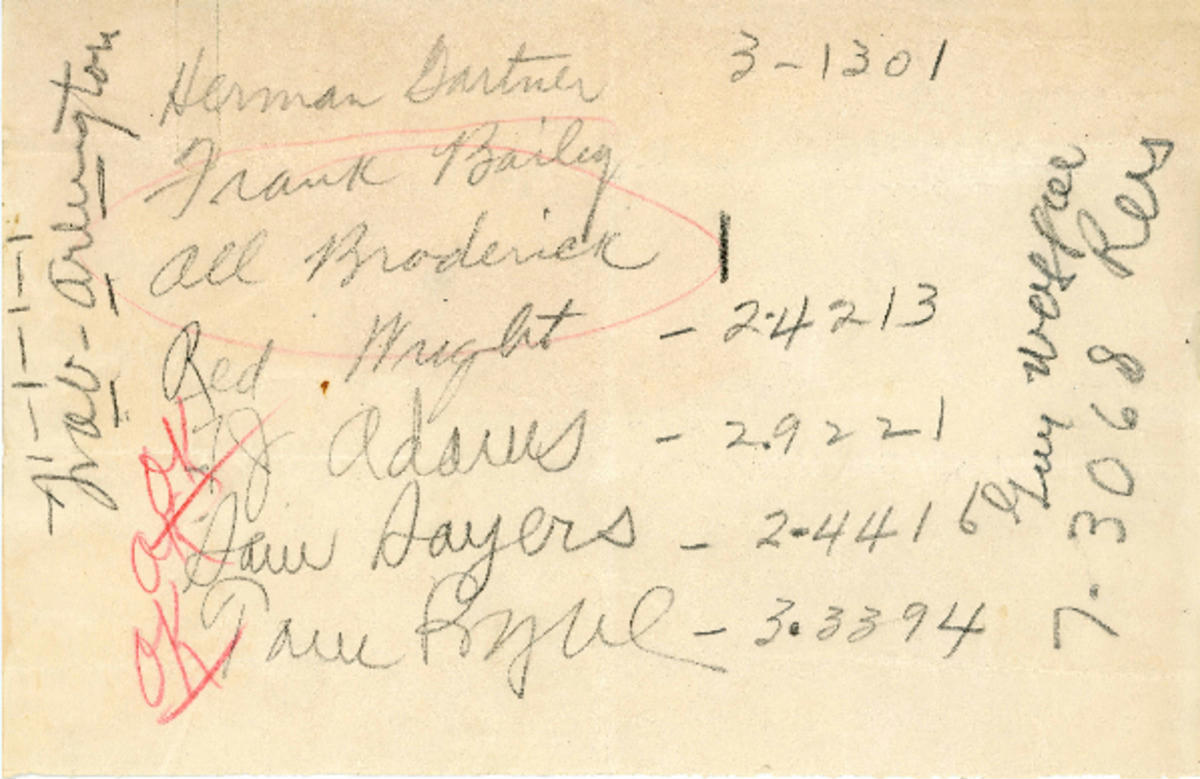 Herman Gartner 3-1301
Frank Bailey
All Broderick
Red Wright - 2-4213
OK J Adams - 2.9221
OK Sam Sayers - 2-4416
OK Tom - 3.3394
Arlington
Guy
7.3068 Res